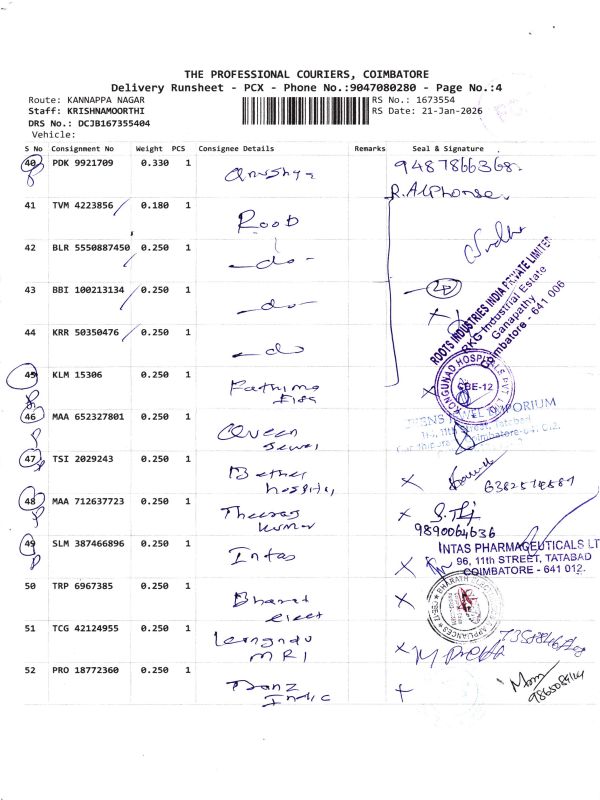 THE PROFESSIONAL COURIERS, COIMBATORE
Delivery Runsheet - PCX - Phone No.:9047080280 - Page No.:4
Route: KANNAPPA NAGAR
RS No.: 1673554
Staff: KRISHNAMOORTHI
RS Date: 21-Jan-2026
DRS No.: DCJB167355404
Vehicle:
S No Consignment No Weight PCS Consignee Details Remarks Seal & Signature
40 PDK 9921709 0.330 1 Anushya 9487866368
R. Alphonse
41 TVM 4223856 0.180 1 Roob
42 BLR 5550887450 0.250 1 -do-
43 BBI 100213134 0.250 1 -do-
ROOTS INDUSTRIES INDIA PRIVATE LIMITED
RKG Industrial Estate
Ganapathy
Coimbatore - 641 006
44 KRR 50350476 0.250 1 -do
45 KLM 15306 0.250 1 Fathima
KONGUNAD HOSPITALS PVT LTD
CBE-12
46 MAA 652327801 0.250 1 Queen
Jewel
QUEENS JEWEL EMPORIUM
11th Street, Tatabad
47 TSI 2029243 0.250 1 Bethel
hospital
6382514587
48 MAA 712637723 0.250 1 Theeraj
kumar
9890064636
49 SLM 387466896 0.250 1 Intas
INTAS PHARMACEUTICALS LT
96, 11th STREET, TATABAD
COIMBATORE - 641 012.
50 TRP 6967385 0.250 1 Bharat
elect
51 TCG 42124955 0.250 1
MRI
52 PRO 18772360 0.250 1 Danz
Indic